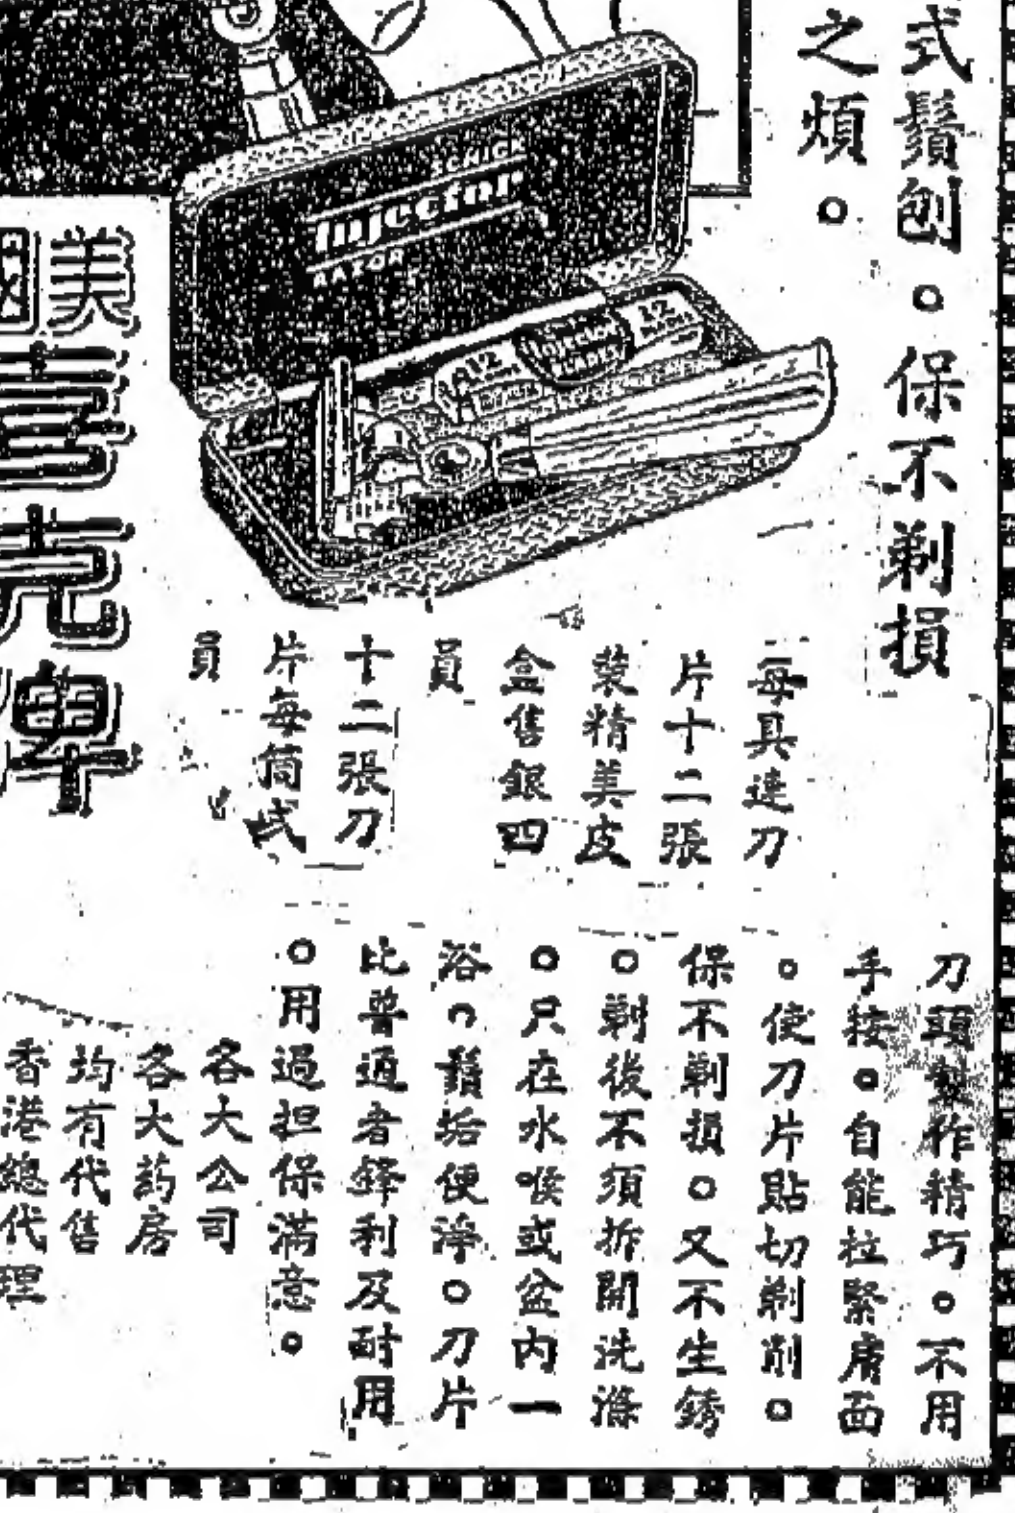 式鬚刨。保不剃損
之煩。
SCHICK
Injector
RAZOR
12
12
美國
喜克牌
每具連刀
片十二張
裝精美皮
盒售銀四
員
十二張刀
片每筒式
員
刀頭製作精巧。不用
手按。自能拉緊膚面
。使刀片貼切剃削。
保不剃損。又不生銹
。剃後不須拆開洗滌
。只在水喉或盆內一
浴。鬚垢便淨。刀片
比普通者鋒利及耐用
。用過担保滿意。
各大公司
各大药房
均有代售
香港總代理